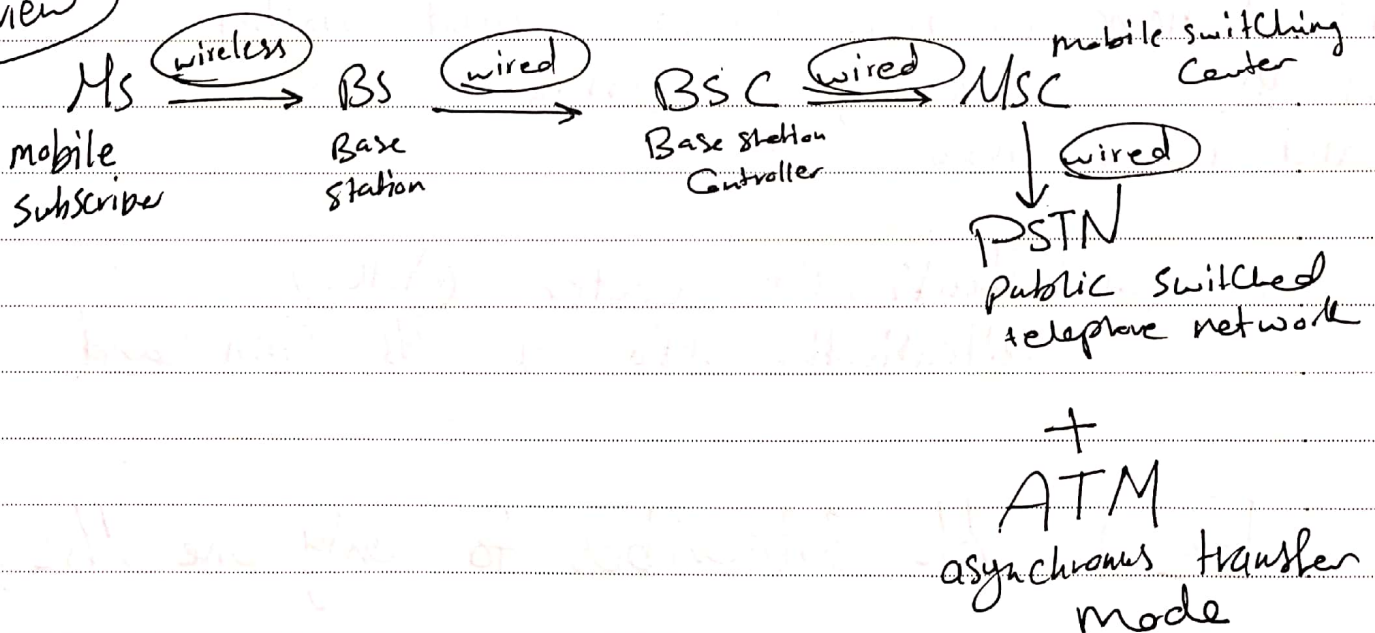 view
Ms wireless BS wired BSC wired MSC mobile switching
Center
mobile
subscriber
Base
station
Base station
Controller
wired
PSTN
public switched
telephone network
+
ATM
asynchronus transfer
mode